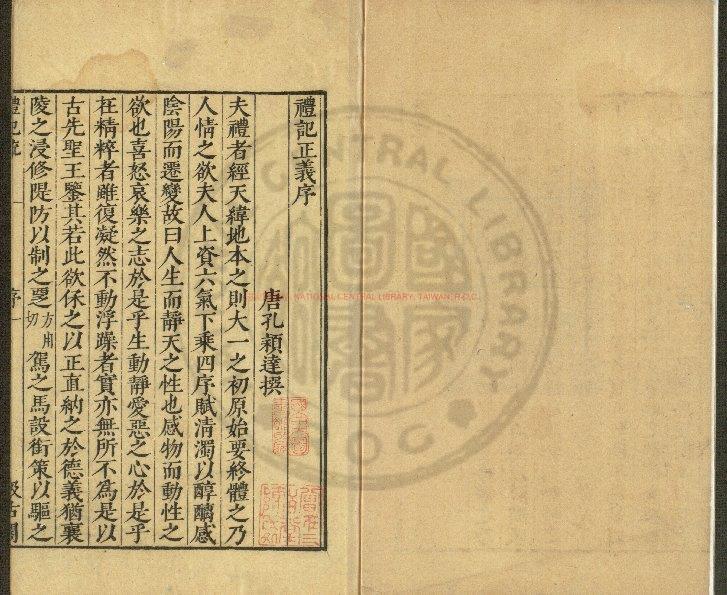 禮記正義序
唐孔穎達撰
夫禮者經天緯地本之則大一之初原始要終體之乃
人情之欲夫人上資六氣下乘四序賦清濁以醇醨感
陰陽而遷變故曰人生而靜天之性也感物而動性之
欲也喜怒哀樂之志於是乎生動靜愛惡之心於是乎
在精粹者雖復凝然不動浮躁者實亦無所不為是以
古先聖王鑒其若此欲保之以正直納之於德義猶襄
陵之浸修隄防以制之覂方用切駕之馬設銜策以驅之
禮記疏 序 一 汲古閣
NATIONAL CENTRAL LIBRARY, TAIWAN, R.O.C.